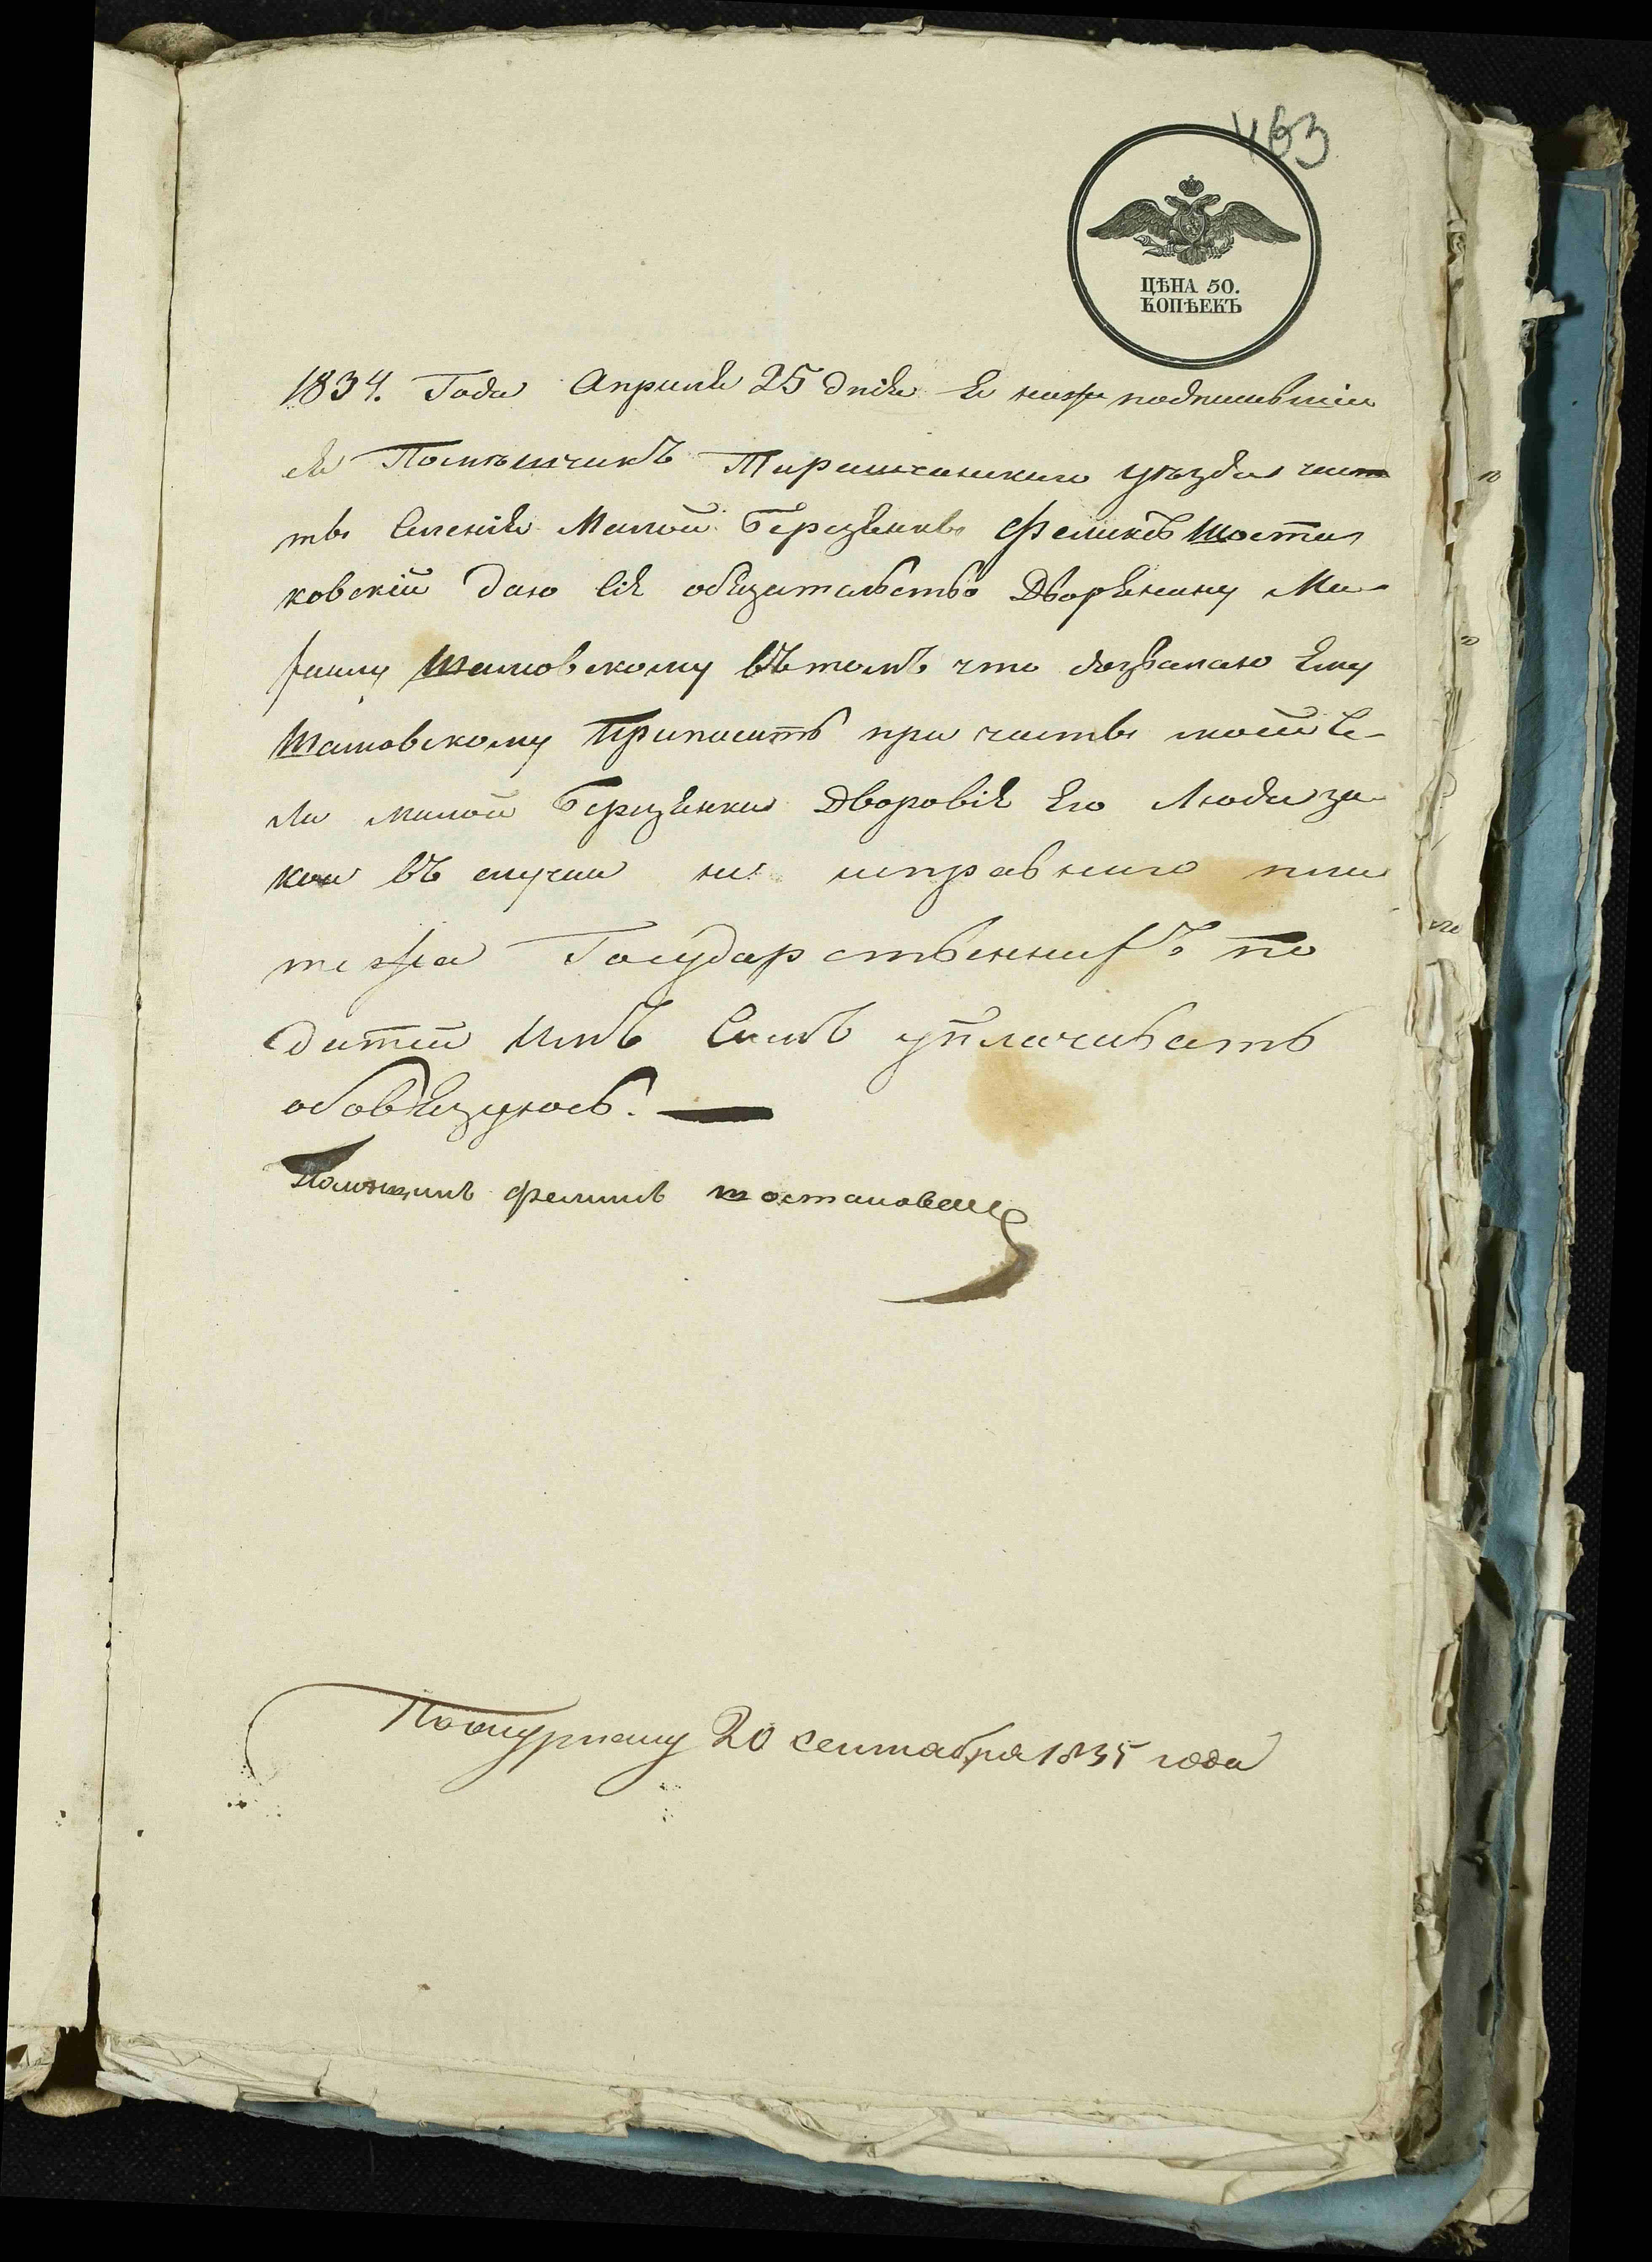 463
ЦѢНА 50.
КОПѢЕКЪ
1834. Года Апреля 25 дня я ниже подписавшій
ся Помѣщикъ Таращанскаго уѣзда част
ты Селенія Малой Березянки Феликсъ Шоста
ковскій даю сіе обязательство Дворянину Ми
хаилу Шаповскому въ томъ что дозваляю Ему
Шаповскому Приписать при части моей Се-
ла малой Березянки Дворовіе Его Люди за
кои въ случаи не исправнаго пла
тежа Государственнихъ по
датей имъ Самъ уплачивать
обовязуюсь.
Помѣщикъ Феликсъ Шостаковски
20 сентября 1835 года